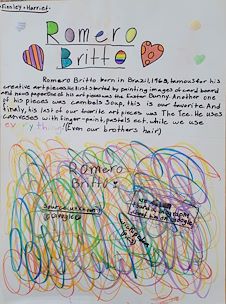 Kinsley + Harriet
Romero
Britto
Romero Britto born in Brazil, 1963, famous for his
creative art pieces. He first started by painting images of card board
and news paper. One of his art pieces was the Easter Bunny. Another one
of his pieces was cambels Soup, this is our favorite. And
finally, his last of our favorite art pieces was The Tee. He uses
canvesses with finger-paint, pastels ect. while we use
everything! (Even our brothers hair)
Romero